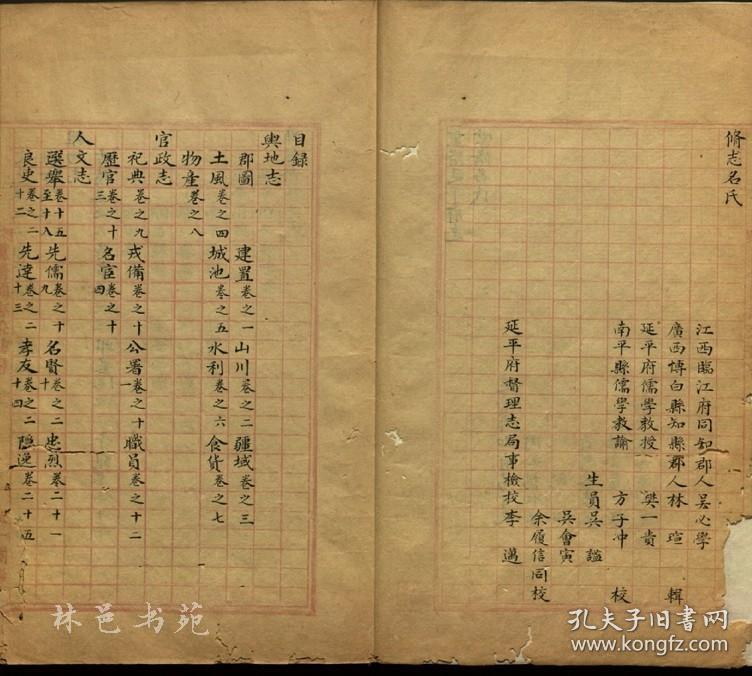 脩志名氏
江西臨江府同知郡人吴必學
廣西博白縣知縣郡人林瑄 輯
延平府儒學教授 樊一貴
南平縣儒學教諭 方子冲 校
生員吴謐
吴會寅
余履信同校
延平府督理志局事檢校李邁
目録
輿地志
郡圖 建置卷之一山川卷之二疆域卷之三
土風卷之四城池卷之五水利卷之六食貨卷之七
物産卷之八
官政志
祀典卷之九戎備卷之十公署卷之十一職員卷之十二
歷官卷之十三名宦卷之十四
人文志
選舉卷十五至十八先儒卷之十九名賢卷之二十忠烈卷二十一
良史卷之二十二先達卷之二十三孝友卷之二十四隱逸卷二十五
林邑书苑
孔夫子旧书网
www.kongfz.com